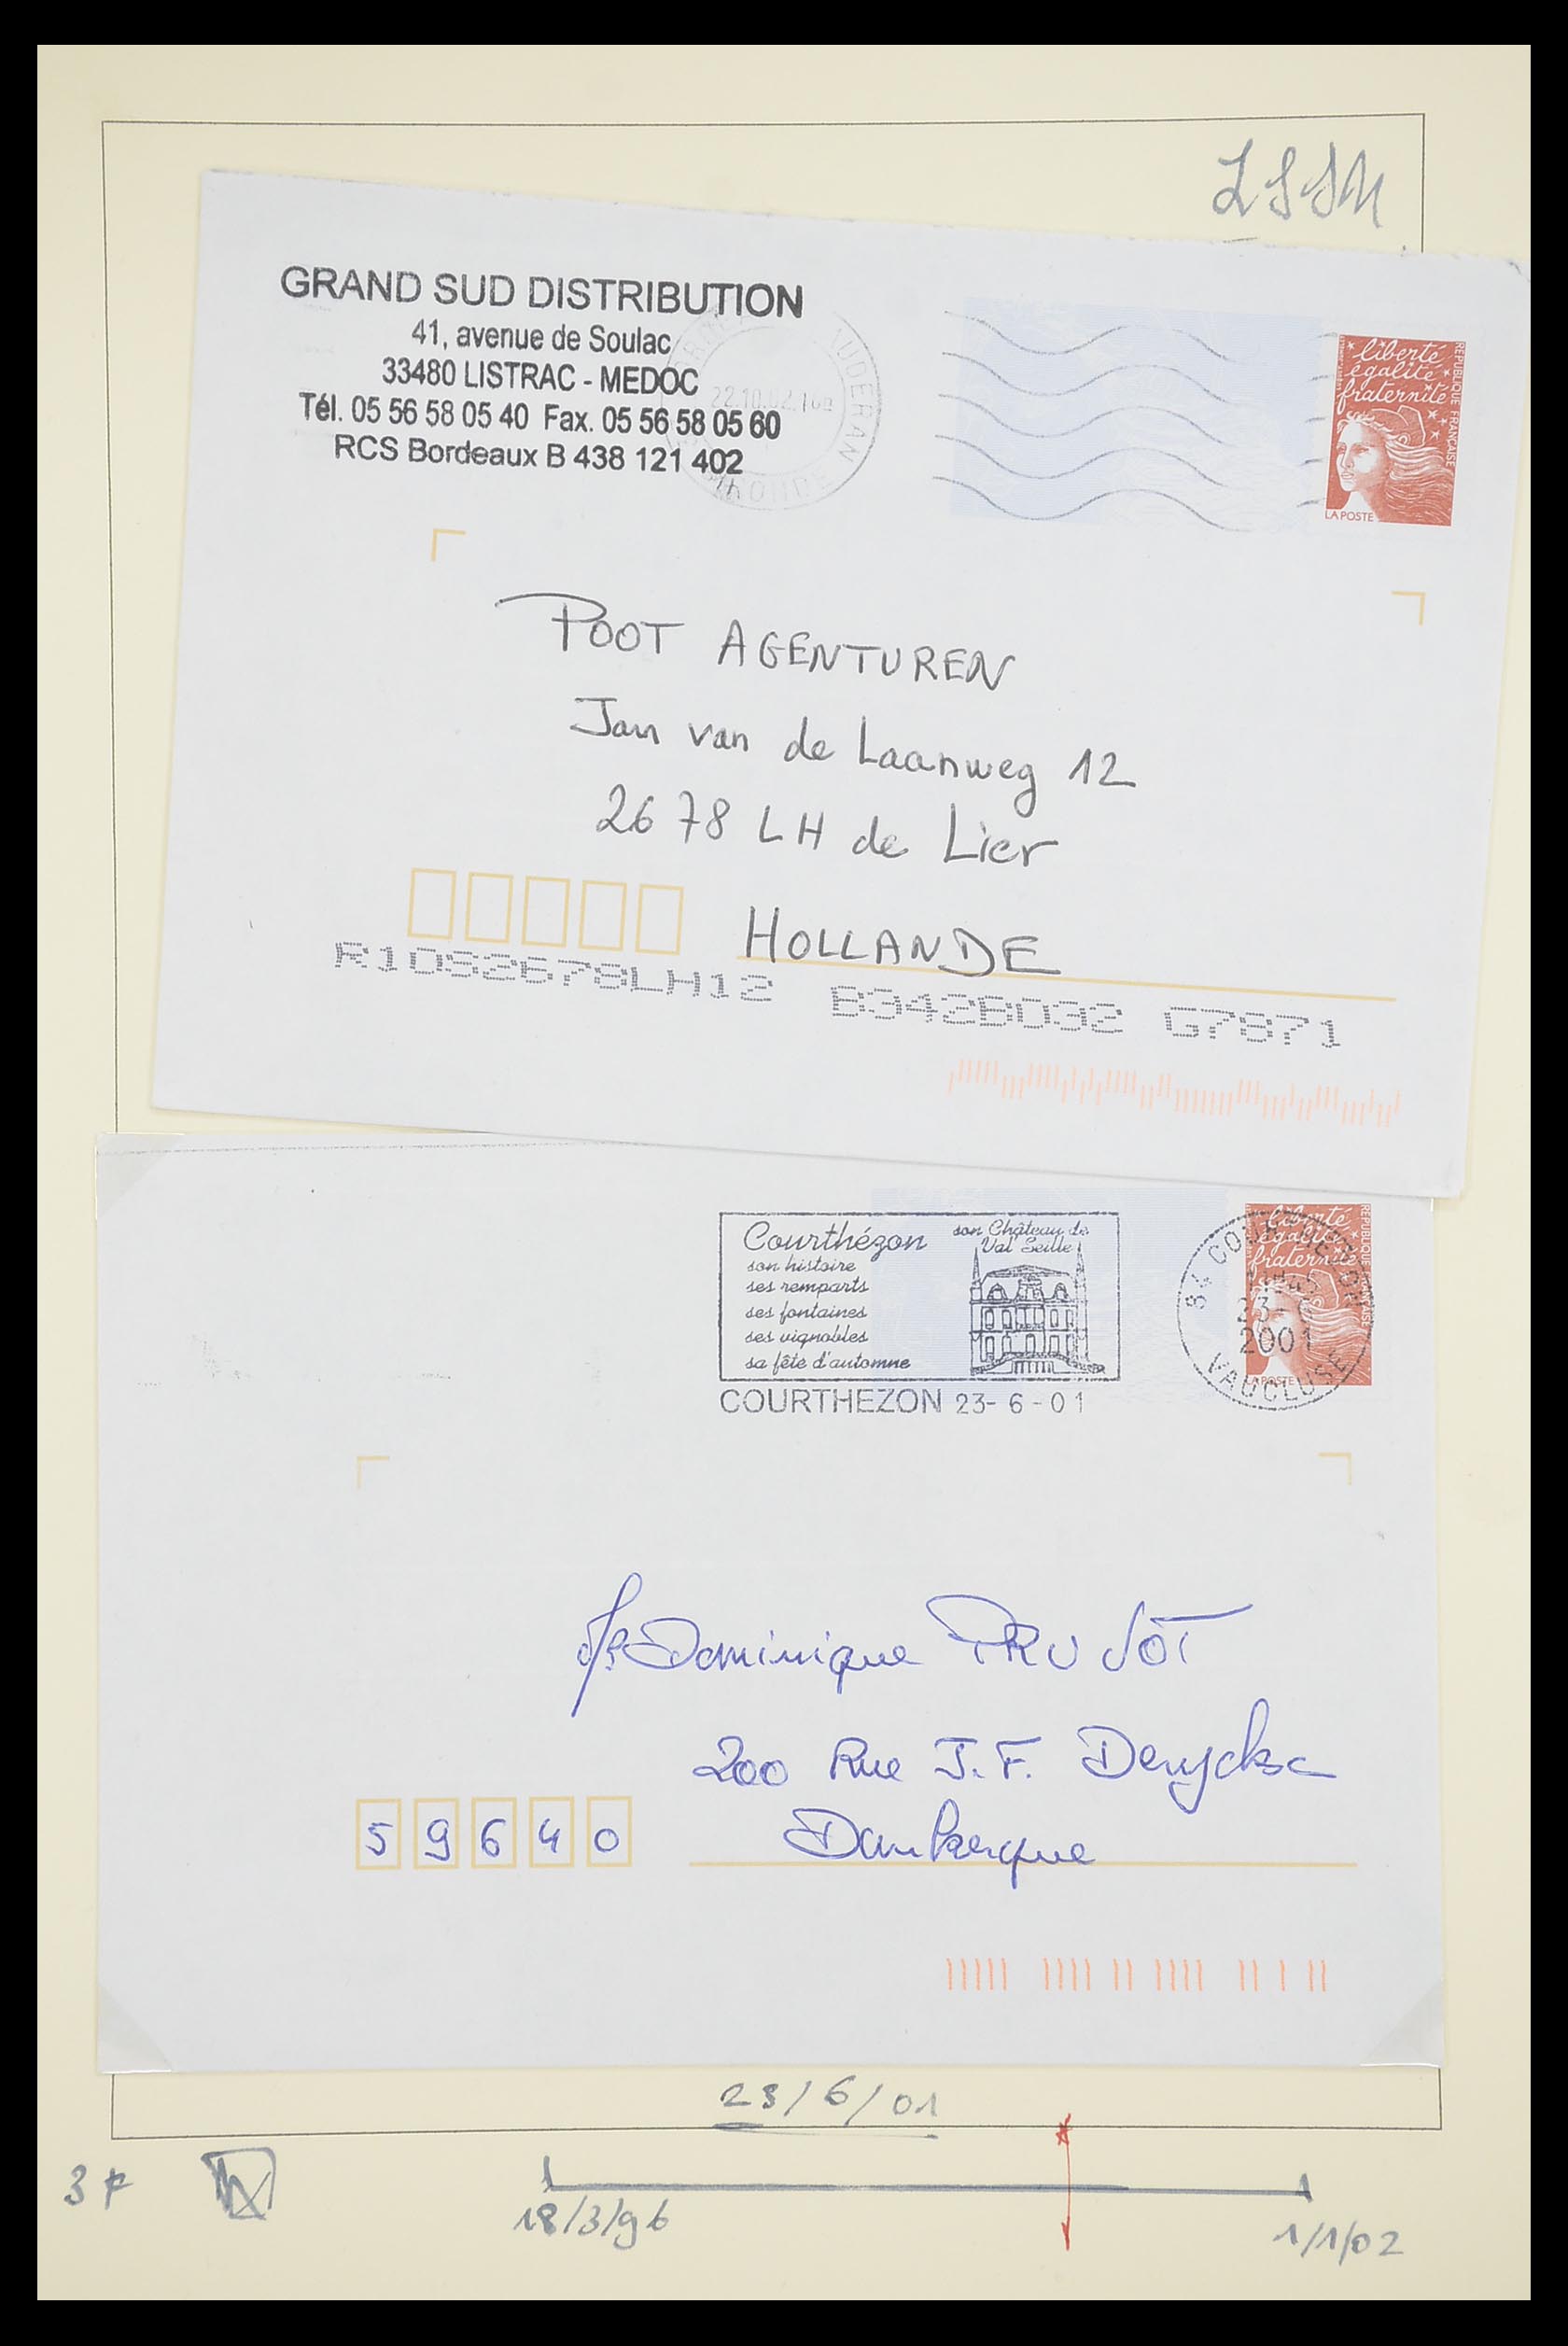 LSSM
GRAND SUD DISTRIBUTION
41, avenue de Soulac
33480 LISTRAC - MEDOC
Tél. 05 56 58 05 40 Fax. 05 56 58 05 60
RCS Bordeaux B 438 121 402
22.10.02
GIRONDE
liberté
égalité
fraternité
RÉPUBLIQUE FRANÇAISE
LA POSTE
POOT AGENTUREN
Jan van de Laanweg 12
2678 LH de Lier
HOLLANDE
R1DS2678LH12 B342BD32 G7871
Courthézon
son histoire
ses remparts
ses fontaines
ses vignobles
sa fête d'automne
son Château de
Val Seille
COURTHEZON 23-6-01
84
23-6
2001
VAUCLUSE
liberté
égalité
fraternité
RÉPUBLIQUE FRANÇAISE
LA POSTE
Dominique PRUVOT
200 Rue J.F. Deryckse
59640 Dunkerque
23/6/01
3 F
18/3/96
1/1/02